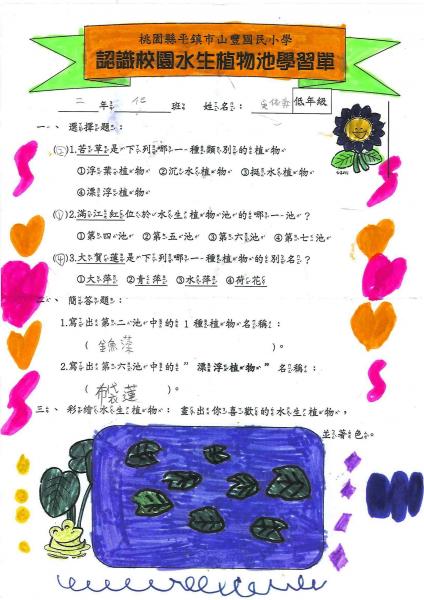 桃園縣平鎮市山豐國民小學
認識校園水生植物池學習單
二年 班 姓名： 低年級
一、選擇題：
(③)1.苦草是下列哪一種類別的植物
①浮葉植物 ②沉水植物 ③挺水植物
④漂浮植物
(①)2.滿江紅位於水生植物池的哪一池？
①第四池 ②第五池 ③第六池 ④第七池
(④)3.大賀蓮是下列哪一種植物的別名？
①大萍 ②青萍 ③水萍 ④荷花
二、簡答題：
1.寫出第二池中的1種植物名稱：
( 藻 )。
2.寫出第六池中的"漂浮植物"名稱：
( 布袋蓮 )。
三、彩繪水生植物：畫出你喜歡的水生植物，
並著色。